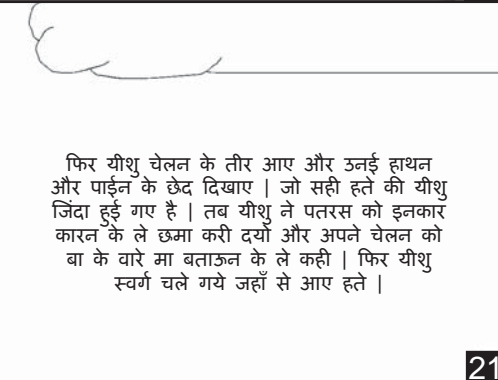 फिर यीशु चेलन के तीर आए और उनई हाथन
और पाईन के छेद दिखाए | जो सही हते की यीशु
जिंदा हुई गए है | तब यीशु ने पतरस को इनकार
कारन के ले छमा करी दयो और अपने चेलन को
बा के वारे मा बताऊन के ले कही | फिर यीशु
स्वर्ग चले गये जहाँ से आए हते |
21